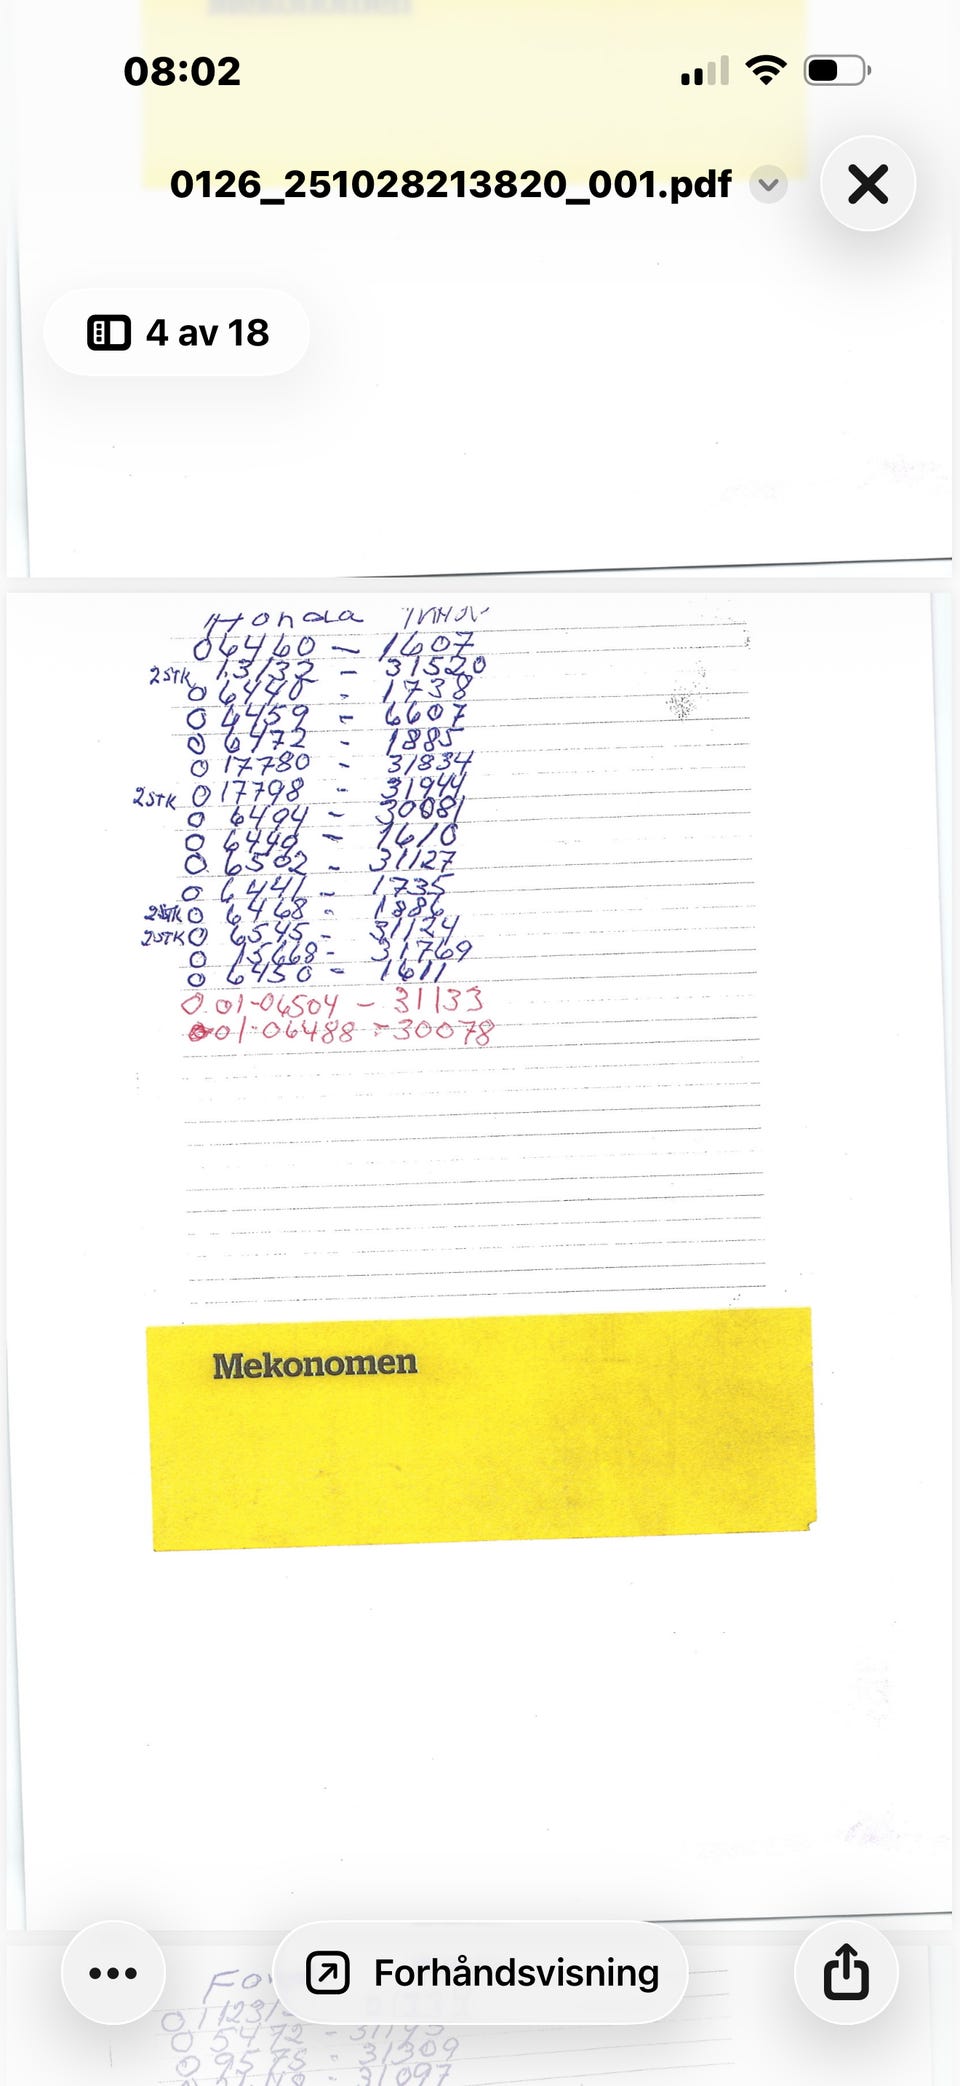 08:02
0126_251028213820_001.pdf
4 av 18
Honda
06460 - 1607
2STK 13132 - 31520
0 6440 - 1738
0 6459 - 6607
0 6472 - 1885
0 17780 - 31834
2STK 0 17798 - 31944
0 6494 - 30081
0 6449 - 1610
0 6502 - 31127
0 6441 - 1735
2STK 0 6468 - 1886
2STK 0 6545 - 31124
0 15668 - 31769
0 6450 - 1611
0 01-06504 - 31133
01-06488 - 30078
Mekonomen
Forhåndsvisning
0 11231-
0 5472 - 31195
0 9575 - 31309
31097